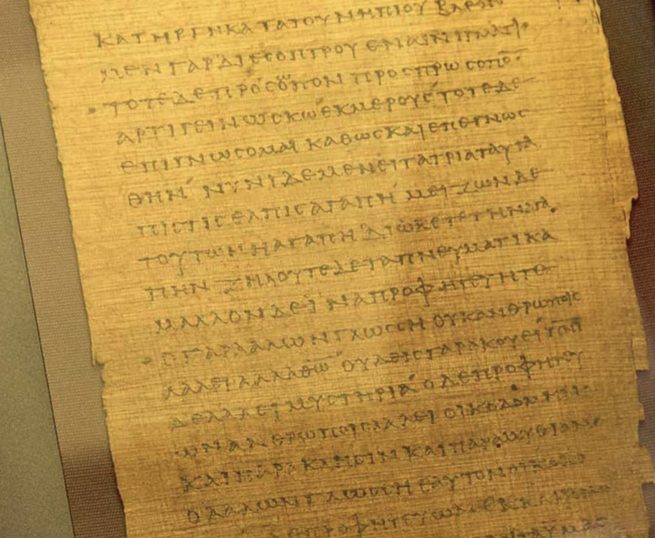 ΚΑΤΗΡΓΗΚΑΤΑΤΟΥΝΗΠΙΟΥ
ΜΕΝΓΑΡΔΙΕϹΟΠΤΡΟΥΕΝΑΙΝΙΓΜΑΤΙ
ΤΟΤΕΔΕΠΡΟϹΟΠΟΝΠΡΟϹΠΡΩϹΟΠΟ̅
ΑΡΤΙΓΕΙΝΩϹΚΩΕΚΜΕΡΟΥϹΤΟΤΕΔΕ
ΕΠΙΓΝΩϹΟΜΑΙΚΑΘΩϹΚΑΙΕΠΕΓΝΩϹ
ΘΗΝ ΝΥΝΙΔΕΜΕΝΕΙΤΑΤΡΙΑΤΑΥΤΑ
ΠΙϹΤΙϹΕΛΠΙϹΑΓΑΠΗ ΜΕΙΖΩΝΔΕ
ΤΟΥΤΩΝΗΑΓΑΠΗ ΔΙΩΚΕΤΕΤΗΝΑΓΑ
ΠΗΝ ΖΗΛΟΥΤΕΔΕΤΑΠΝΕΥΜΑΤΙΚΑ
ΜΑΛΛΟΝΔΕΪΝΑΠΡΟΦΗΤΕΥΗΤΕ
ΟΓΑΡΛΑΛΩΝΓΛΩϹϹΗΟΥΚΑΝΘΡΩΠΟΙϹ
ΛΑΛΕΙΑΛΛΑΘ̅Ω̅ ΟΥΔΕΙϹΓΑΡΑΚΟΥΕΙ
ΔΕΛΑΛΕΙΜΥϹΤΗΡΙΑ ΟΔΕΠΡΟΦΗΤΕΥ
ΩΝΑΝΘΡΩΠΟΙϹΛΑΛΕΙΟΙΚΟΔΟΜΗΝ
ΚΑΙΠΑΡΑΚΛΗϹΙΝΚΑΙΠΑΡΑΜΥΘΙΑΝ
ΟΛΑΛΩΝΓΛΩϹϹΗΕΑΥΤΟΝΟΙΚΟΔΟ